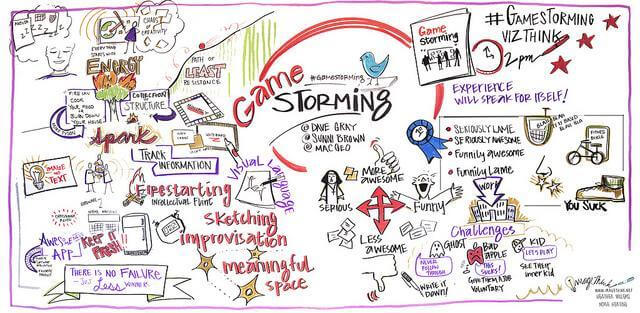 CHAOS OF CREATIVITY
EVERYTHING STARTS WITH
ENERGY
FIRE CAN
COOK
YOUR FOOD
OR
BURN DOWN
YOUR HOUSE
COLLECTION
STRUCTURE
PATH OF
LEAST
RESISTANCE
Spark
TRACK
INFORMATION
IMAGE AND TEXT
Firestarting
INTELLECTUAL POINT
Visual Language
SKetching
improvisation
meaningful
space
AWESOMENESS
APP
Keep it
FRESH!!
THERE IS NO FAILURE
- JUST Less WINNER.
Game
STORMING
#GAMESTORMING
@ DAVE GRAY
@ SUNNI BROWN
@ MACGEO
Game
storming
#GAMESTORMING
VIZTHINK
2pm
EXPERIENCE
WILL SPEAK FOR ITSELF!
• SERIOUSLY LAME
• SERIOUSLY AWESOME
• Funnily awesome
• Funnily Lame
MORE
AWESOME
SERIOUS
Funny
LESS
AWESOME
WORK
YOU SUCK
Challenges
GHOST
NEVER
FOLLOW
THROUGH
WRITE IT
DOWN!
BAD
APPLE
THIS
SUCKS!
GIVE THEM A JOB
VOLUNTARY
KID
LET'S PLAY
SEE THEIR
inner kid
ImageThink
WWW.IMAGETHINK.NET
HEATHER WILLEMS
NORA HERTING